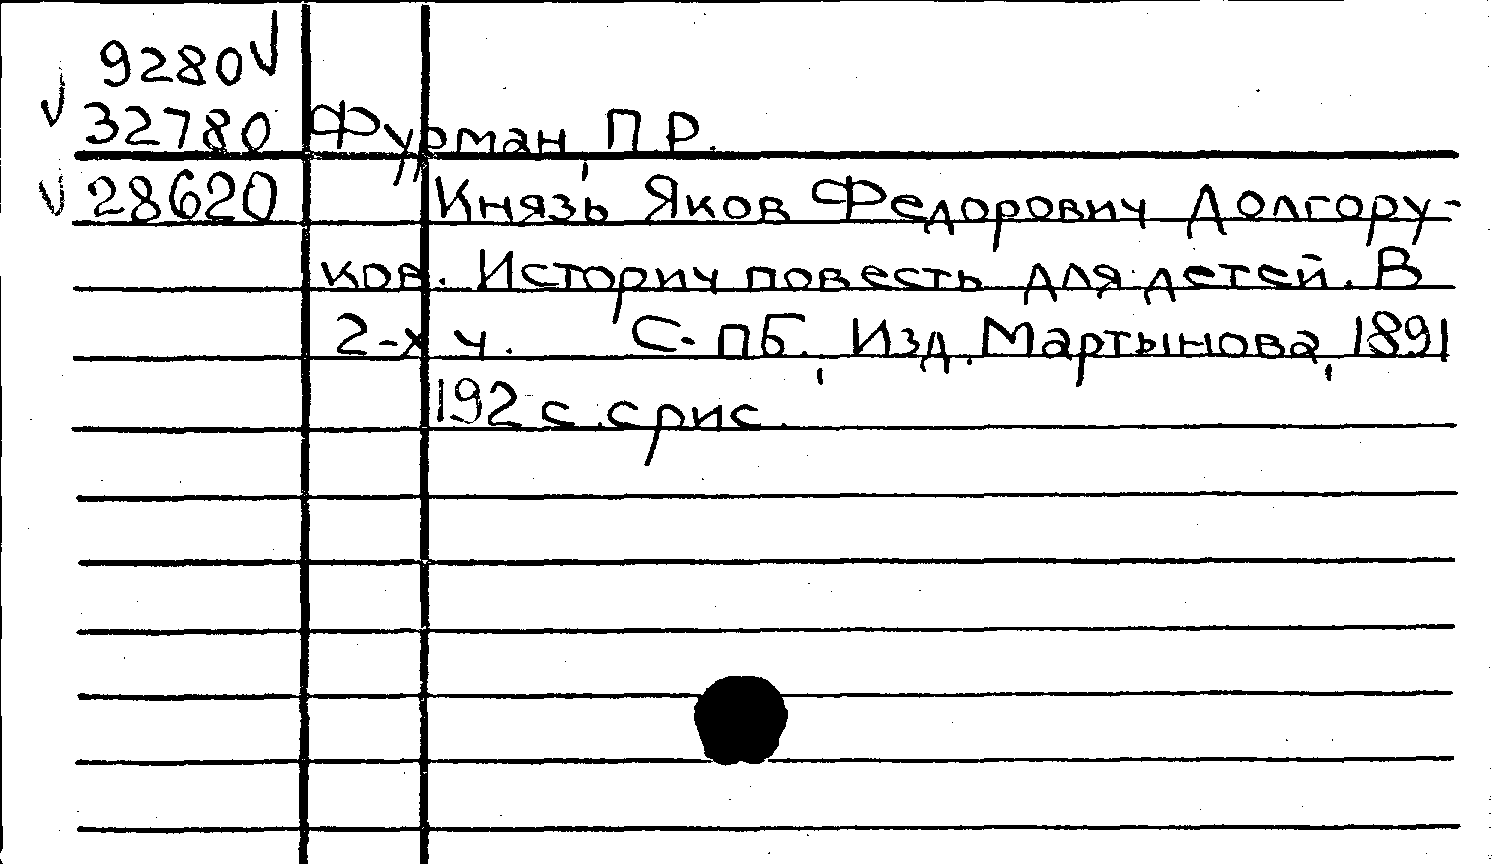 9280 √
√ 32780 Фурман, П.Р.
√ 28620 Князь Яков Федорович Долгору-
ков. Историч повесть для детей. В
2-х ч. С-ПБ., Изд. Мартынова, 1891
192 с. с рис.